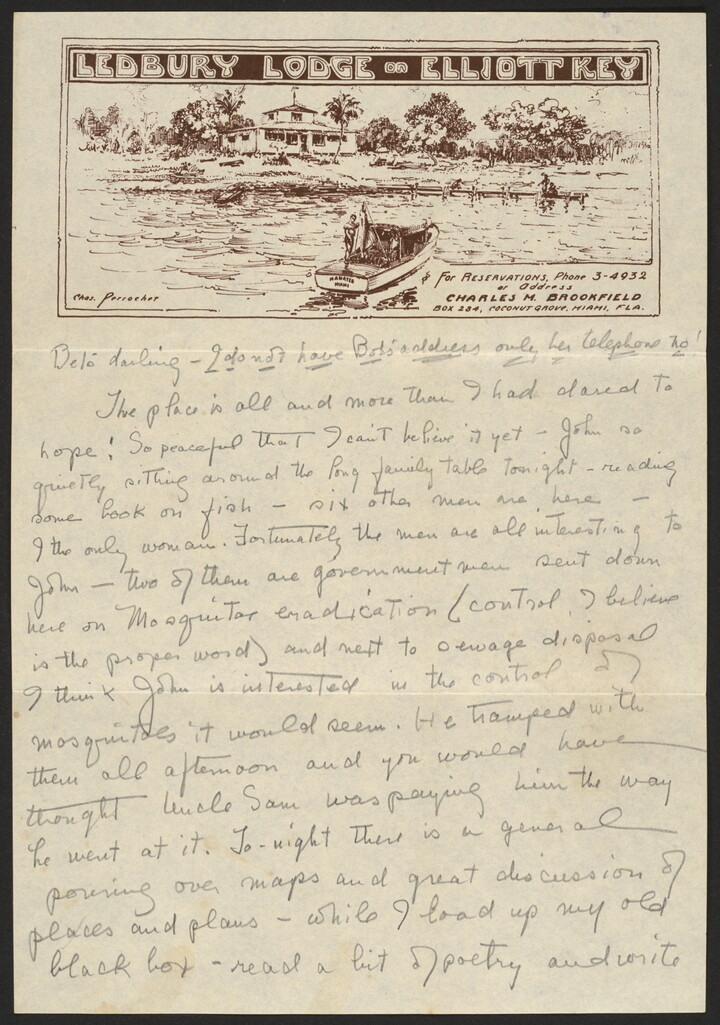 LEDBURY LODGE ON ELLIOTT KEY
MANATEE
MIAMI
Chas. Perrochet
For RESERVATIONS, Phone 3-4932
or Address
CHARLES M. BROOKFIELD
BOX 284, COCONUT GROVE, MIAMI, FLA.
Bets darling - I do not have Bob's address only her telephone no!
The place is all and more than I had dared to
hope! So peaceful that I can't believe it yet - John so
quietly sitting around the long family table tonight - reading
some book on fish - six other men are here -
I the only woman. Fortunately the men are all interesting to
John - two of them are government men sent down
here on Mosquitoe eradication (control, I believe
is the proper word) and next to sewage disposal
I think John is interested in the control of
mosquitoes it would seem. He tramped with
them all afternoon and you would have
thought Uncle Sam was paying him the way
he went at it. To-night there is a general
pouring over maps and great discussion of
places and plans - while I load up my old
black box - read a bit of poetry and write